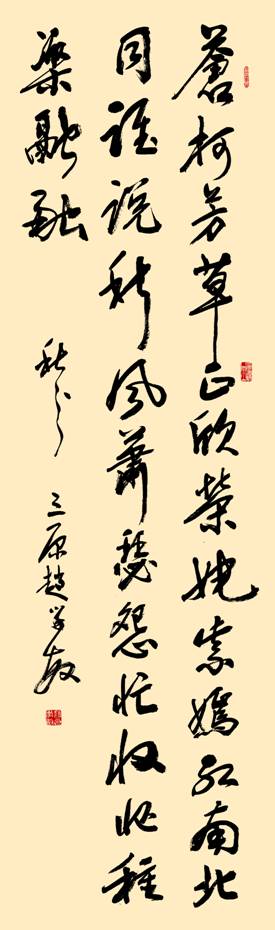 蒼柯芳草正欣榮姹紫嫣紅南北
同誰說秋風蕭瑟怨忙收忙種
樂融融
秋分
三原趙學敏